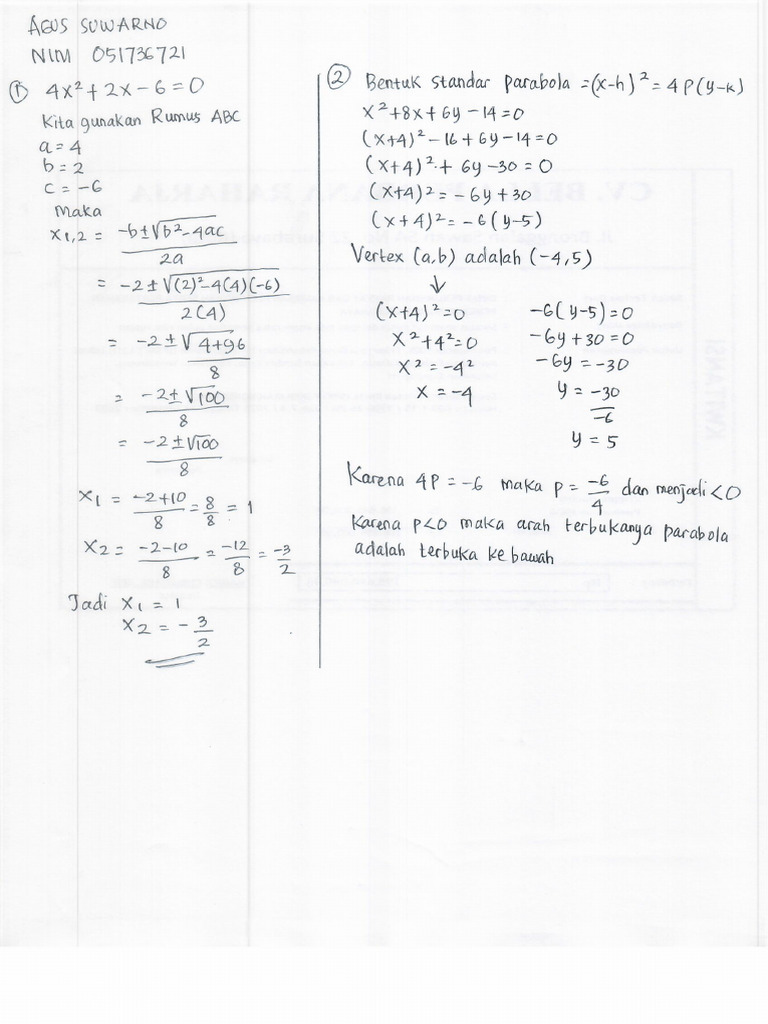 AGUS SUWARNO
NIM 051736721
① 4x² + 2x - 6 = 0
Kita gunakan Rumus ABC
a = 4
b = 2
c = -6
Maka
x1,2 = -b ± √b² - 4ac / 2a
= -2 ± √(2)² - 4(4)(-6) / 2(4)
= -2 ± √4+96 / 8
= -2 ± √100 / 8
= -2 ± √100 / 8
x1 = -2+10 / 8 = 8/8 = 1
x2 = -2-10 / 8 = -12/8 = -3/2
Jadi x1 = 1
x2 = - 3/2
② Bentuk standar parabola = (x-h)² = 4P(y-k)
x² + 8x + 6y - 14 = 0
(x+4)² - 16 + 6y - 14 = 0
(x+4)² + 6y - 30 = 0
(x+4)² = - 6y + 30
(x+4)² = -6(y-5)
Vertex (a,b) adalah (-4,5)
↓
(x+4)² = 0 -6(y-5) = 0
x² + 4² = 0 -6y + 30 = 0
x² = -4² -6y = -30
x = -4 y = -30/-6
y = 5
Karena 4P = -6 maka P = -6/4 dan menjadi < 0
Karena P<0 maka arah terbukanya parabola
adalah terbuka ke bawah